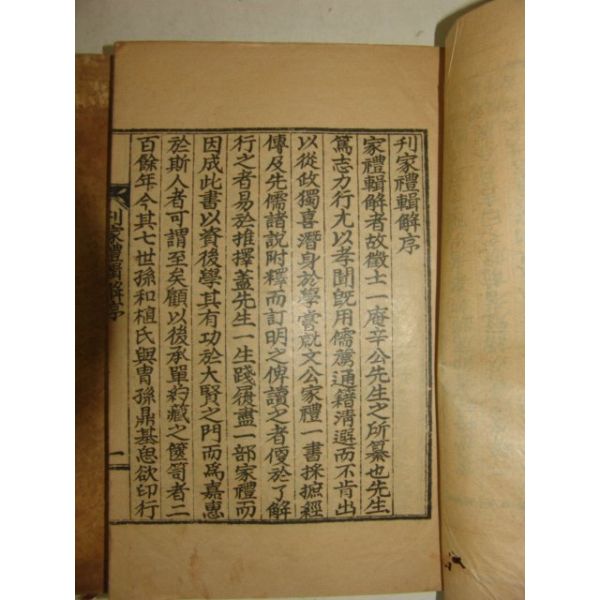 刊家禮輯解序
家禮輯解者故徵士一庵辛公先生之所纂也先生
篤志力行尤以孝聞旣用儒薦通籍淸選而不肯出
以從政獨喜潛身於學嘗就文公家禮一書採摭經
傳及先儒諸說附釋而訂明之俾讀之者便於了解
行之者易於推擇蓋先生一生踐履盡一部家禮而
因成此書以資後學其有功於大賢之門而爲嘉惠
於斯人者可謂至矣顧以後承單約藏之篋笥者二
百餘年今其七世孫和植氏與胄孫鼎基思欲印行
刊家禮輯解序
一